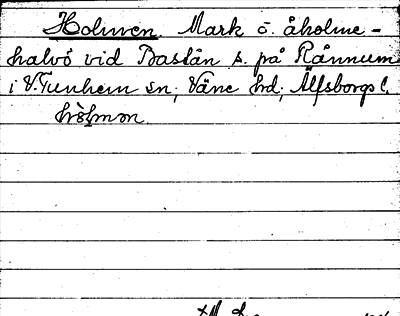 Holmen. Mark o. åholme-
halvö vid Bastån s. på Rånnum
i V. Tunhem sn, Väne hd, Älfsborgs l.
hòlmən